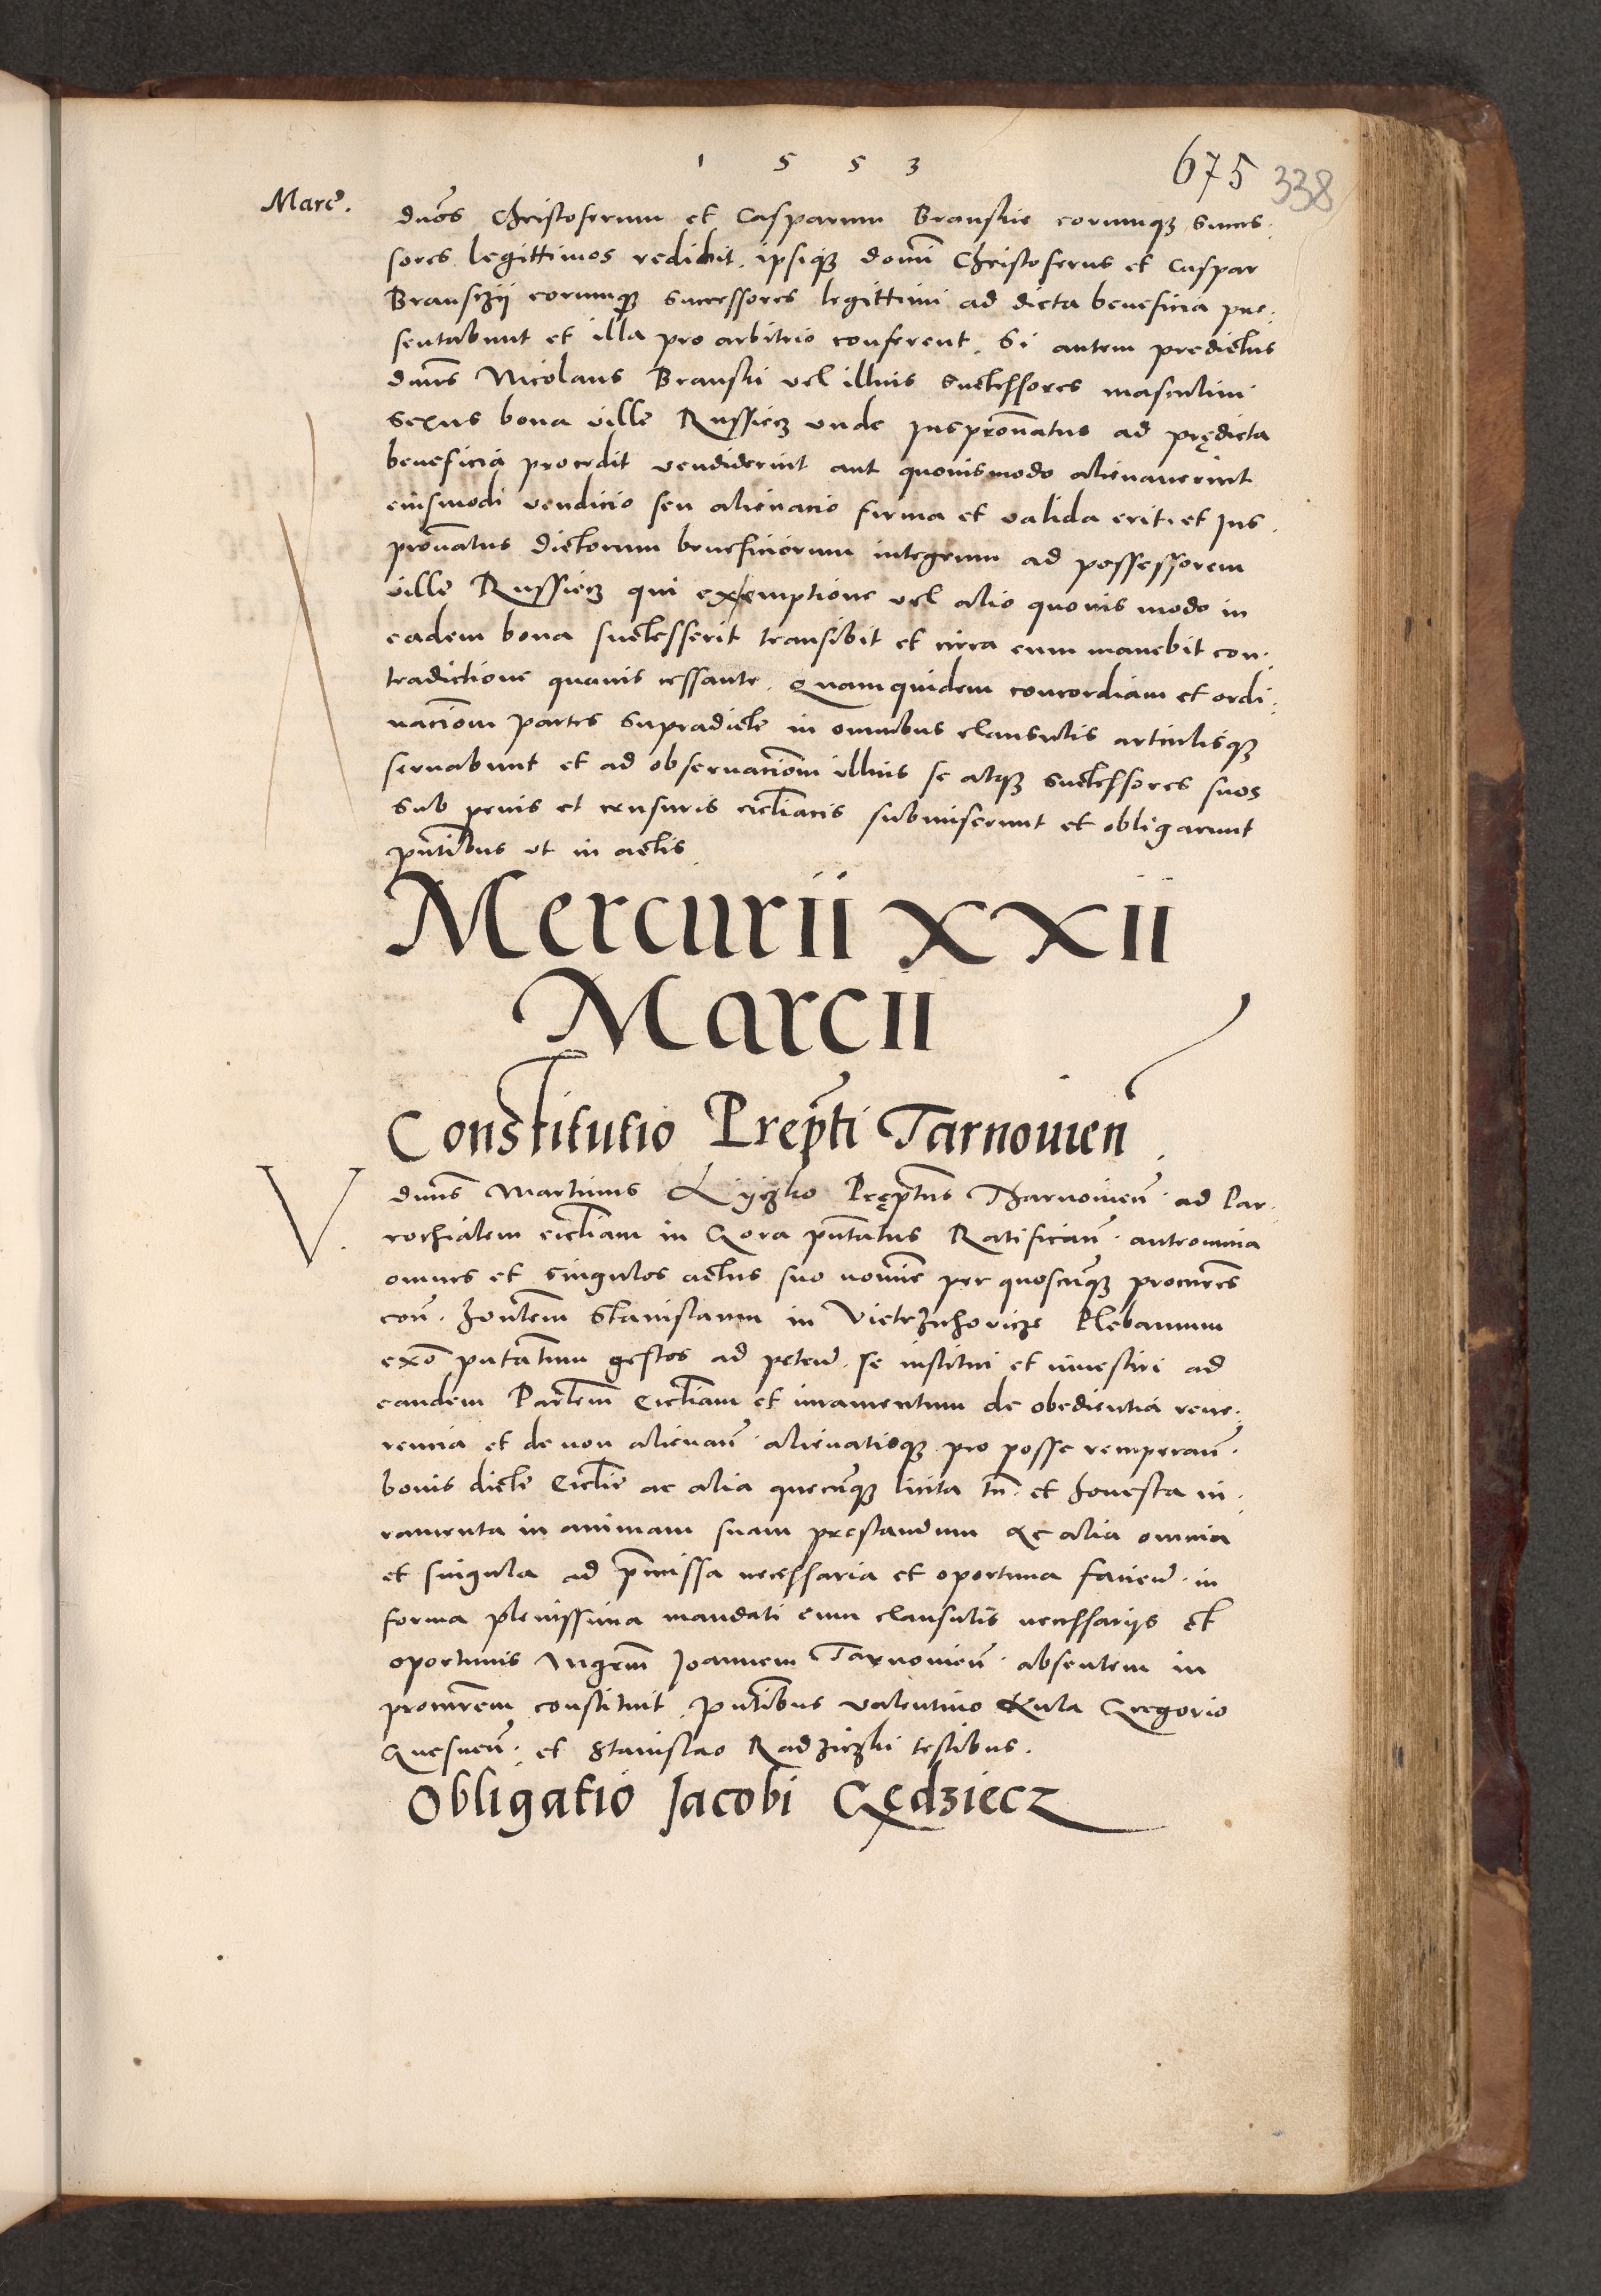 1553
675 338
Marcĩ.
dnõs Christoferum et Casparum Branskie eorumqȝ succes:
sores legittimos redibit. ipsiqȝ domĩ Christoferus et Caspar
Bransczii eorumqȝ successores legittimi ad dicta beneficia pre:
sentabunt et illa pro arbitrio conferent. Si autem predictus
dnũs Nicolaus Branski vel illius successores masculini
sexus bona ville Russiecz unde Juspronatus ad prędicta
beneficia procedit vendiderint aut quovismodo alienaverint
eiusmodi vendicio seu alienacio firma et valida erit. et Jus
prõnatus dictorum beneficiorum integrum ad possessorem
ville Russiecz qui ex emptione vel alio quovis modo in
eadem bona successerit transibit et circa eum manebit con:
tradictione quavis cessante. Quamquidem concordiam et ordi:
nacionem partes supradicte in omnibus clausulis articulisqȝ
servabunt et ad observacionem illius se atqȝ successores suos
sub penis et censuris eccliacis submiserunt et obligarunt
pñtibus ut in actis
Mercurii XXII
Marcii
Constitutio Prepti Tarnovien
V.
dnũs Martinus Lyczko Pręptus Tharnovien̄. ad Par:
rochialem eccliam in Gora pñtatus Ratifican̄. antromnia
omnes et singulos actus suo nomine per quoscunqȝ procures
con̄. honlem Stanislaum in Vietrzychovicze Plebanum
exõ putatum gestos ad petend̄. se institui et investiri ad
eandem Parlem Eccliam et iuramentum de obedientia reve:
rencia et de non alienan̄. alienatisqȝ pro posse recuperan̄.
bonis dicte Ecclie ac alia quecunqȝ licita tn̄. et honesta iu:
ramenta in animam suam prestandum Ac alia omnia
et singula ad p̄missa necessaria et oportuna faciend̄. in
forma plenissima mandati cum clausulis necessariis et
oportunis Mgrm̄ Joannem Tarnovien̄. absentem in
procurem constituit. Pñtibus Valentino Kula Gregorio
Gnesnen̄. et Stanislao Radziczki testibus.
Obligatio Jacobi Gędziecz